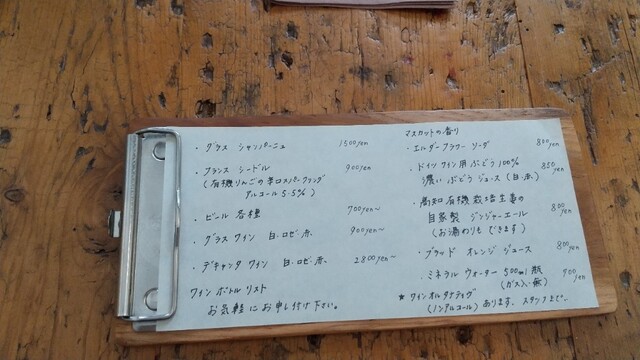 ・グラス シャンパーニュ 1500yen
・フランス シードル 900yen
(有機りんごの辛口スパークリング
アルコール 5.5%)
・ビール 各種 700yen〜
・グラスワイン 白・ロゼ・赤 900yen〜
・デキャンタワイン 白・ロゼ・赤 2800yen〜
ワインボトルリスト
お気軽にお申し付け下さい。
マスカットの香り
・エルダーフラワー ソーダ 800yen
・ドイツ ワイン用ぶどう100%
濃いぶどうジュース (白・赤) 850yen
・高知 有機栽培生姜の
自家製 ジンジャーエール 800yen
(お湯わりもできます)
・ブラッド オレンジ ジュース 800yen
・ミネラル ウォーター 500ml瓶 900yen
(ガス入・無)
★ワインオルタナティヴ
(ノンアルコール)あります、スタッフまで〜